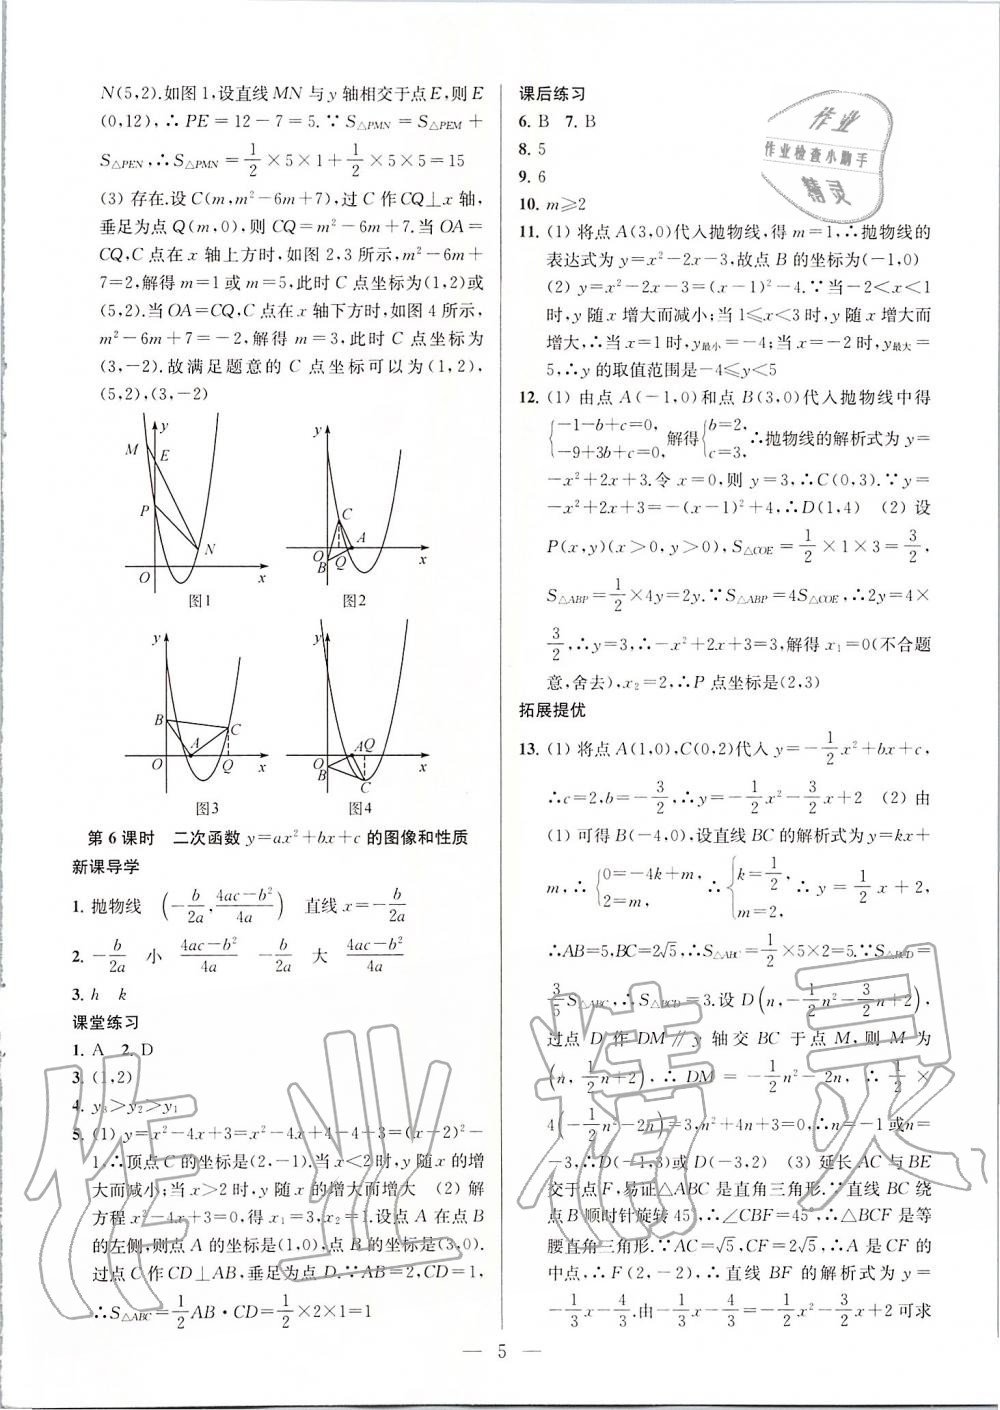 N(5,2).如图1,设直线MN与y轴相交于点E,则E
(0,12),∴PE=12-7=5.∵S△PMN=S△PEM+
S△PEN,∴S△PMN=1/2×5×1+1/2×5×5=15
(3) 存在.设C(m,m²-6m+7),过C作CQ⊥x轴,
垂足为点Q(m,0),则CQ=m²-6m+7.当OA=
CQ,C点在x轴上方时,如图2,3所示,m²-6m+
7=2,解得m=1或m=5,此时C点坐标为(1,2)或
(5,2).当OA=CQ,C点在x轴下方时,如图4所示,
m²-6m+7=-2,解得m=3,此时C点坐标为
(3,-2).故满足题意的C点坐标可以为(1,2),
(5,2),(3,-2)
y M E P N O x
图1
y C A O B Q x
图2
y B C A O Q x
图3
y O A Q B C x
图4
第6课时 二次函数y=ax²+bx+c的图像和性质
新课导学
1. 抛物线 (-b/2a,(4ac-b²)/4a) 直线x=-b/2a
2. -b/2a 小 (4ac-b²)/4a -b/2a 大 (4ac-b²)/4a
3. h k
课堂练习
1. A 2. D
3. (1,2)
4. y₃>y₂>y₁
5. (1) y=x²-4x+3=x²-4x+4-4+3=(x-2)²-
1.∴顶点C的坐标是(2,-1).当x<2时,y随x的增
大而减小;当x>2时,y随x的增大而增大 (2) 解
方程x²-4x+3=0,得x₁=3,x₂=1.设点A在点B
的左侧,则点A的坐标是(1,0),点B的坐标是(3,0).
过点C作CD⊥AB,垂足为点D.∵AB=2,CD=1,
∴S△ABC=1/2AB·CD=1/2×2×1=1
课后练习
6. B 7. B
8. 5
9. 6
10. m≥2
11. (1) 将点A(3,0)代入抛物线,得m=1,∴抛物线的
表达式为y=x²-2x-3,故点B的坐标为(-1,0)
(2) y=x²-2x-3=(x-1)²-4.∵当-2<x<1
时,y随x增大而减小;当1≤x<3时,y随x增大而
增大,∴当x=1时,y最小=-4;当x=-2时,y最大=
5,∴y的取值范围是-4≤y<5
12. (1) 由点A(-1,0)和点B(3,0)代入抛物线中得
{-1-b+c=0, -9+3b+c=0, 解得{b=2, c=3, ∴抛物线的解析式为y=
-x²+2x+3.令x=0,则y=3,∴C(0,3).∵y=
-x²+2x+3=-(x-1)²+4,∴D(1,4) (2) 设
P(x,y)(x>0,y>0),S△COE=1/2×1×3=3/2,
S△ABP=1/2×4y=2y.∵S△ABP=4S△COE,∴2y=4×
3/2,∴y=3,∴-x²+2x+3=3,解得x₁=0(不合题
意,舍去),x₂=2,∴P点坐标是(2,3)
拓展提优
13. (1) 将点A(1,0),C(0,2)代入y=-1/2x²+bx+c,
∴c=2,b=-3/2,∴y=-1/2x²-3/2x+2 (2) 由
(1)可得B(-4,0),设直线BC的解析式为y=kx+
m,∴{0=-4k+m, 2=m, ∴{k=1/2, m=2, ∴y=1/2x+2,
∴AB=5,BC=2√5,∴S△ABC=1/2×5×2=5.∵S△BCD=
3/5S△ABC,∴S△BCD=3.设D(n,-1/2n²-3/2n+2),
过点D作DM∥y轴交BC于点M,则M为
(n,1/2n+2),∴DM=-1/2n²-2n,∴1/2×
4(-1/2n²-2n)=3,n²+4n+3=0,∴n=-1或n=
-3,∴D(-1,3)或D(-3,2) (3) 延长AC与BE
交于点F,易证△ABC是直角三角形.∵直线BC绕
点B顺时针旋转45°,∴∠CBF=45°,∴△BCF是等
腰直角三角形.∵AC=√5,CF=2√5,∴A是CF的
中点,∴F(2,-2),∴直线BF的解析式为y=
-1/3x-4/3.由-1/3x-4/3=-1/2x²-3/2x+2可求
— 5 —
作业
作业检查小助手
精灵
作业精灵